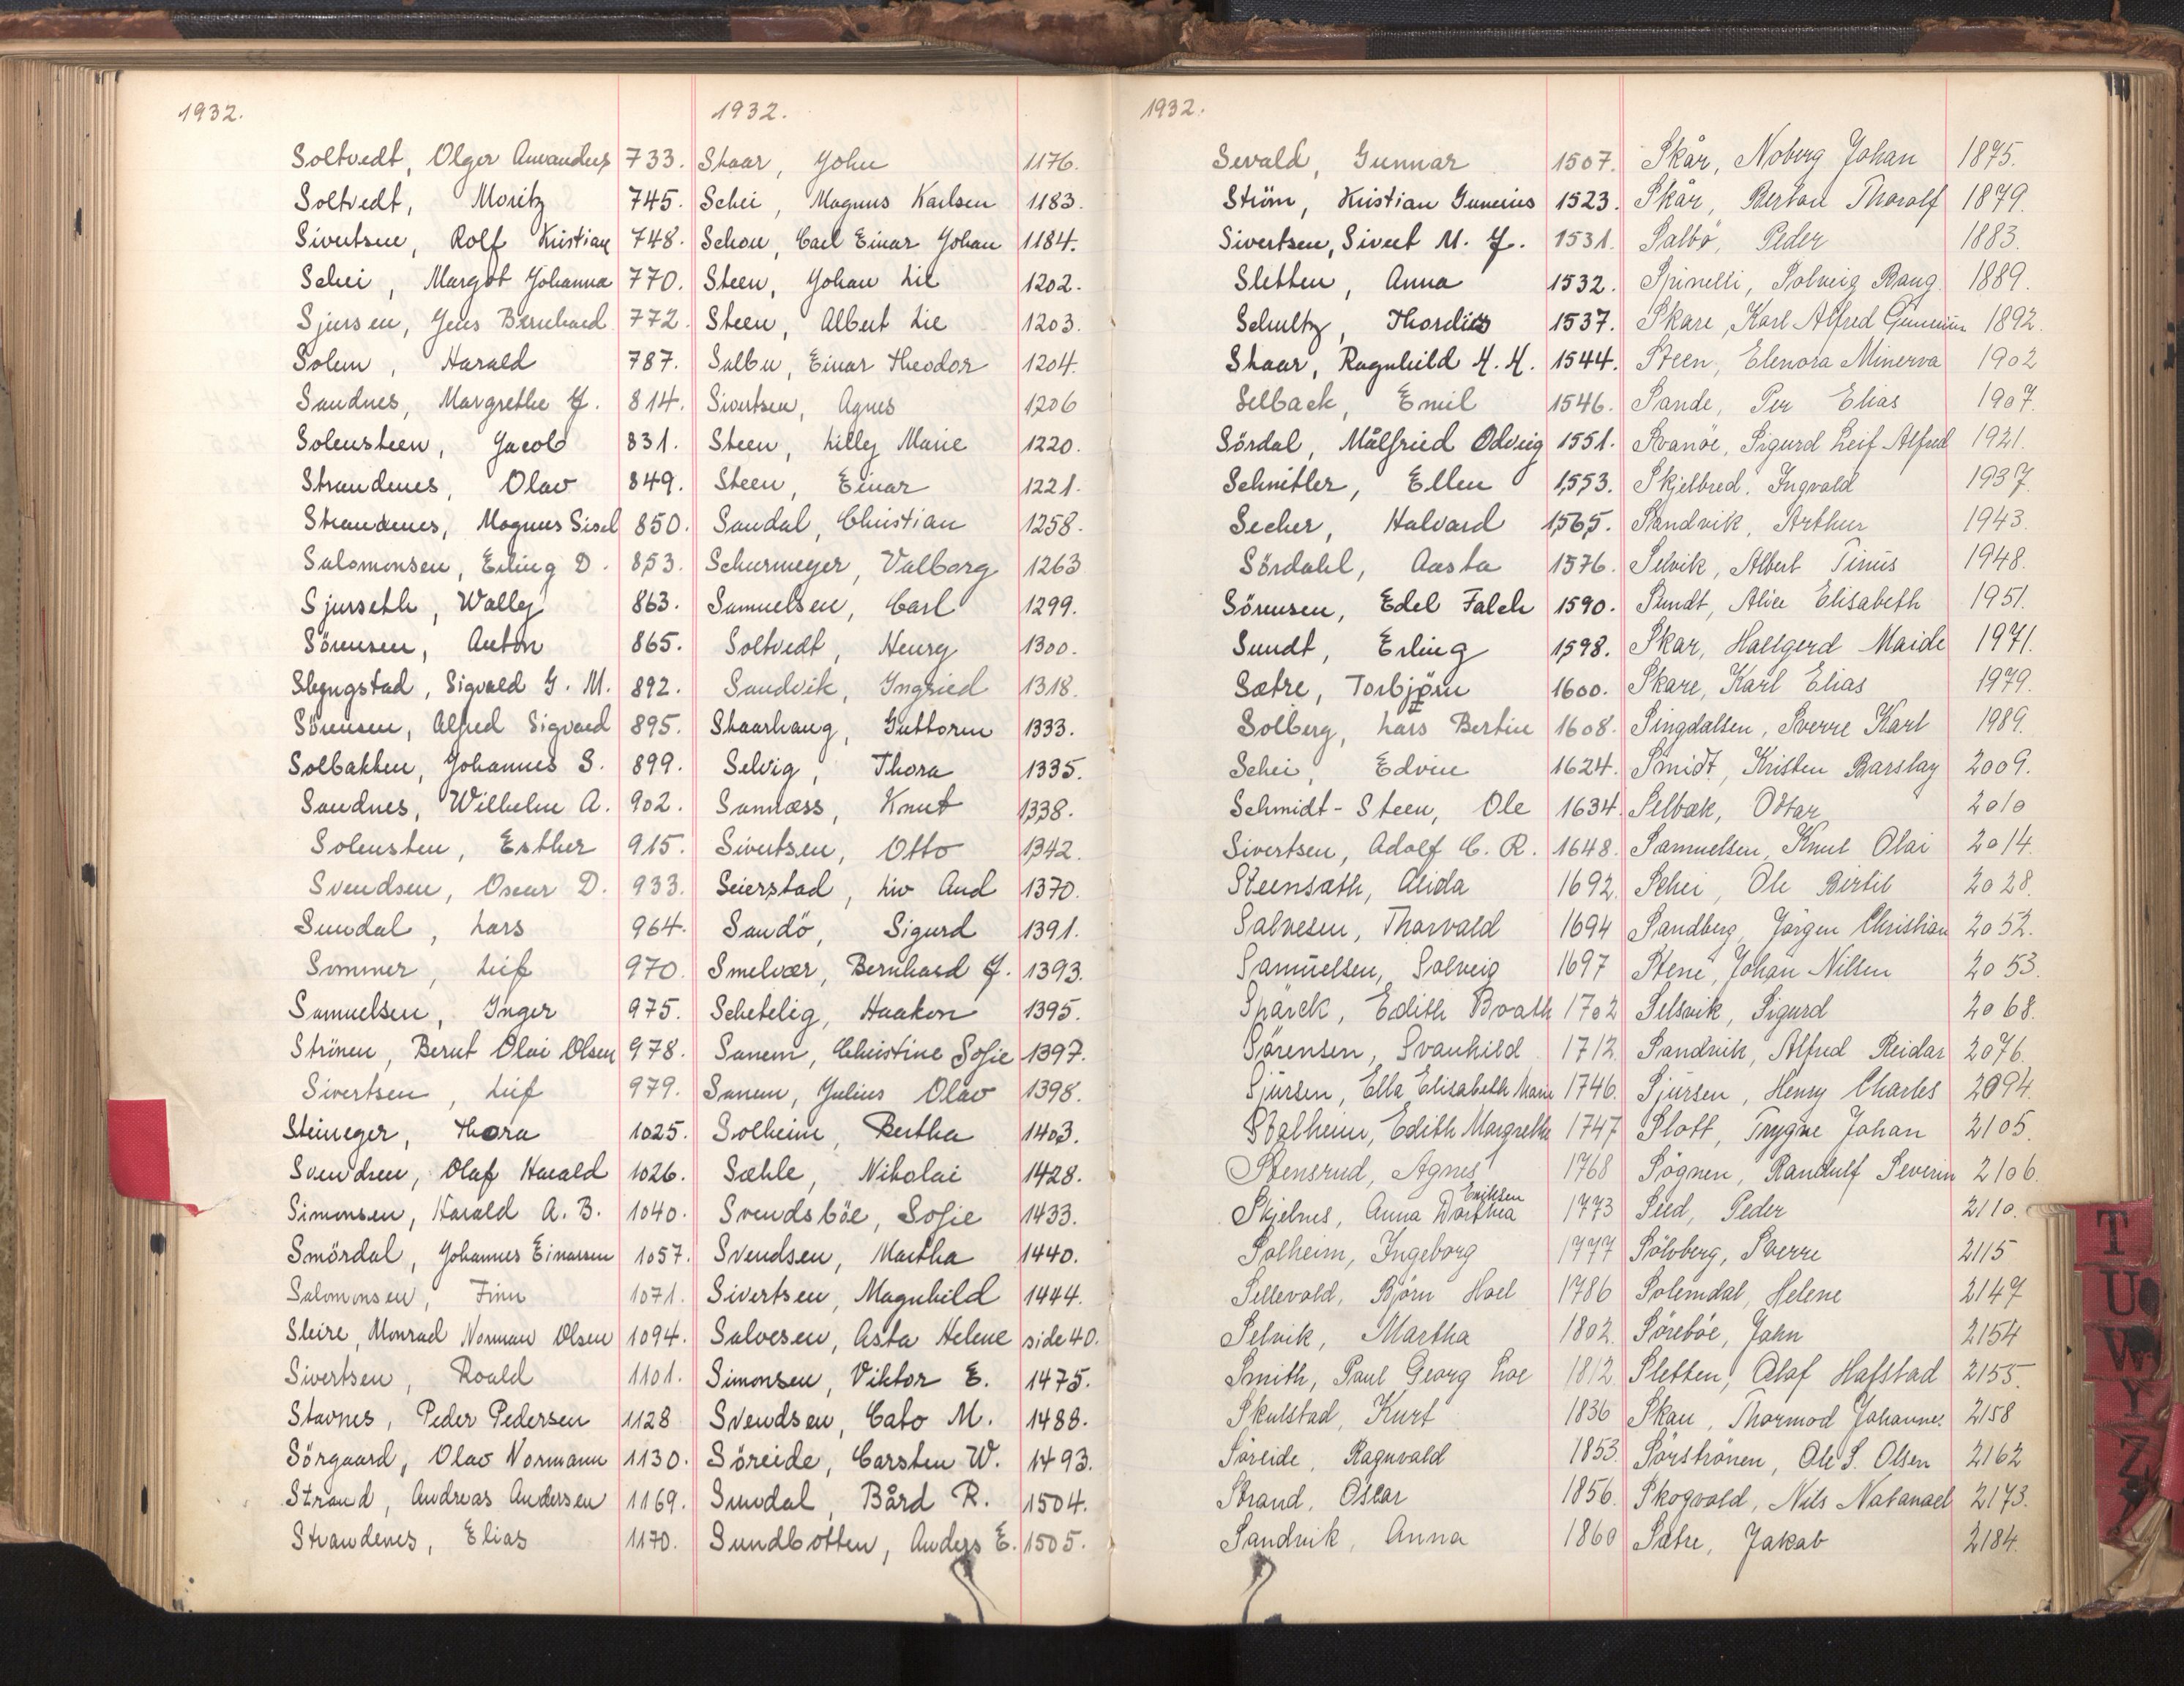 1932.
Soltvedt, Olger Amandus 733.
Soltvedt, Moritz 745.
Sivertsen, Rolf Kristian 748.
Schei, Margot Johanna 770.
Sjursen, Jens Bernhard 772.
Solem, Harald 787.
Sandnes, Margrethe J. 814.
Solensteen, Jacob 831.
Strandenes, Olav 849.
Strandenes, Magnus Sisel 850.
Salomonsen, Erling D. 853.
Sjurseth, Wally 863.
Sörensen, Anton 865.
Slyngstad, Sigvald G. M. 892.
Sörensen, Alfred Sigvard 895.
Solbakken, Johannes S. 899.
Sandnes, Wilhelm A. 902.
Solensten, Esther 915.
Svendsen, Oscar D. 933.
Sundal, Lars 964.
Sommer, Leif 970.
Samuelsen, Inger 975.
Strönen, Bernt Olai Olsen 978.
Sivertsen, Leif 979.
Steineger, Thora 1025.
Svendsen, Olaf Harald 1026.
Simonsen, Harald A. B. 1040.
Smördal, Johannes Einarsen 1057.
Salomonsen, Finn 1071.
Skeire, Monrad Norman Olsen 1094.
Sivertsen, Roald 1101.
Stavnes, Peder Pedersen 1128
Sörgaard, Olav Normann 1130.
Strand, Andreas Andersen 1169.
Strandenes, Elias 1170.
1932.
Skaar, John 1176.
Schei, Magnus Karlsen 1183.
Schou, Carl Einar Johan 1184.
Steen, Johan Lie 1202.
Steen, Albert Lie 1203.
Salbu, Einar Theodor 1204.
Sivertsen, Agnes 1206
Steen, Lilly Marie 1220.
Steen, Einar 1221.
Sandal, Christian 1258.
Schurmeyer, Valborg 1263
Samuelsen, Carl 1299.
Soltvedt, Henry 1300.
Sandvik, Ingfried 1318.
Skaarhaug, Guttorm 1333.
Selvig, Thora 1335.
Sannæss, Knut 1338.
Sivertsen, Otto 1342.
Seierstad, Liv Aud 1370.
Sandö, Sigurd 1391.
Smelvær, Bernhard J. 1393.
Schetelig, Haakon 1395.
Sanem, Christine Sofie 1397.
Sanem, Julius Olav 1398.
Solheim, Bertha 1403.
Sæhle, Nikolai 1428.
Svendsböe, Sofie 1433.
Svendsen, Martha 1440.
Sivertsen, Magnhild 1444.
Salvesen, Asta Helene side 40.
Simonsen, Viktor E. 1475.
Svendsen, Cato M. 1488.
Söreide, Carsten W. 1493.
Sundal, Bård R. 1504.
Sundbotten, Anders E. 1505.
1932.
Sevald, Gunnar 1507.
Ström, Kristian Gunerius 1523.
Sivertsen, Sivert M. J. 1531.
Sletten, Anna 1532.
Schultz, Thordis 1537.
Skaar, Ragnhild H. H. 1544.
Selback, Emil 1546.
Sördal, Målfried Odveig 1551.
Schnitler, Ellen 1553.
Secher, Halvard 1565.
Sördahl, Aasta 1576.
Sörensen, Edel Falch 1590.
Sundt, Erling 1598.
Sætre, Torbjörn 1600.
Solberg, Lars Bertin 1608.
Schei, Edvin 1624.
Schmidt-Steen, Ole 1634
Sivertsen, Adolf C. R. 1648.
Steensæth, Alida 1692
Salvesen, Thorvald 1694
Samuelsen, Solveig 1697
Spärck, Edith Booth 1702
Sörensen, Svanhild 1712
Sjursen, Ella Elisabeth Marie 1746.
Stalheim, Edith Margrethe 1747
Stensrud, Agnes 1768
Skjelnes, Anna Dorthea Eriksen 1773
Solheim, Ingeborg 1777
Sellevold, Björn Hoel 1786
Selvik, Martha 1802.
Smith, Paul Georg Loe 1812
Skulstad, Kurt 1836
Söreide, Ragnvald 1853
Strand, Oscar 1856.
Sandvik, Anna 1860
Skår, Noberg Johan 1875.
Skår, Bertan Thoralf 1879.
Salbö, Peder 1883.
Spinelli, Solveig Bang. 1889.
Skare, Karl Alfred Gunerius 1892.
Steen, Elenora Minerva 1902
Sande, Per Elias 1907.
Svanöe, Sigurd Leif Alfred 1921.
Skjelbred, Ingvald 1937.
Sandvik, Arthur 1943.
Selvik, Albert Tinus 1948.
Sundt, Alice Elisabeth 1951.
Skar, Hallgerd Maide 1971.
Skare, Karl Elias 1979.
Singdalsen, Sverre Karl 1989.
Smidt, Kristen Barslay 2009.
Selbæk, Ottar 2010
Samuelsen, Knut Olai 2014.
Schei, Ole Bertil 2028.
Sandberg, Jörgen Christian 2052.
Stene, Johan Nilsen 2053.
Selsvik, Sigurd 2068.
Sandvik, Alfred Reidar 2076.
Sjursen, Henry Charles 2094.
Slott, Trygve Johan 2105.
Sögnen, Randulf Severin 2106.
Seid, Peder 2110.
Sölvberg, Sverre 2115
Solemdal, Helene 2147
Söreböe, John 2154
Sletten, Olaf Hafstad 2155.
Skau, Thormod Johannes. 2158
Sörströnen, Ole S. Olsen 2162
Skogvold, Nils Natanael 2173.
Sætre, Jakob 2184.
T
U
W
Y
Z